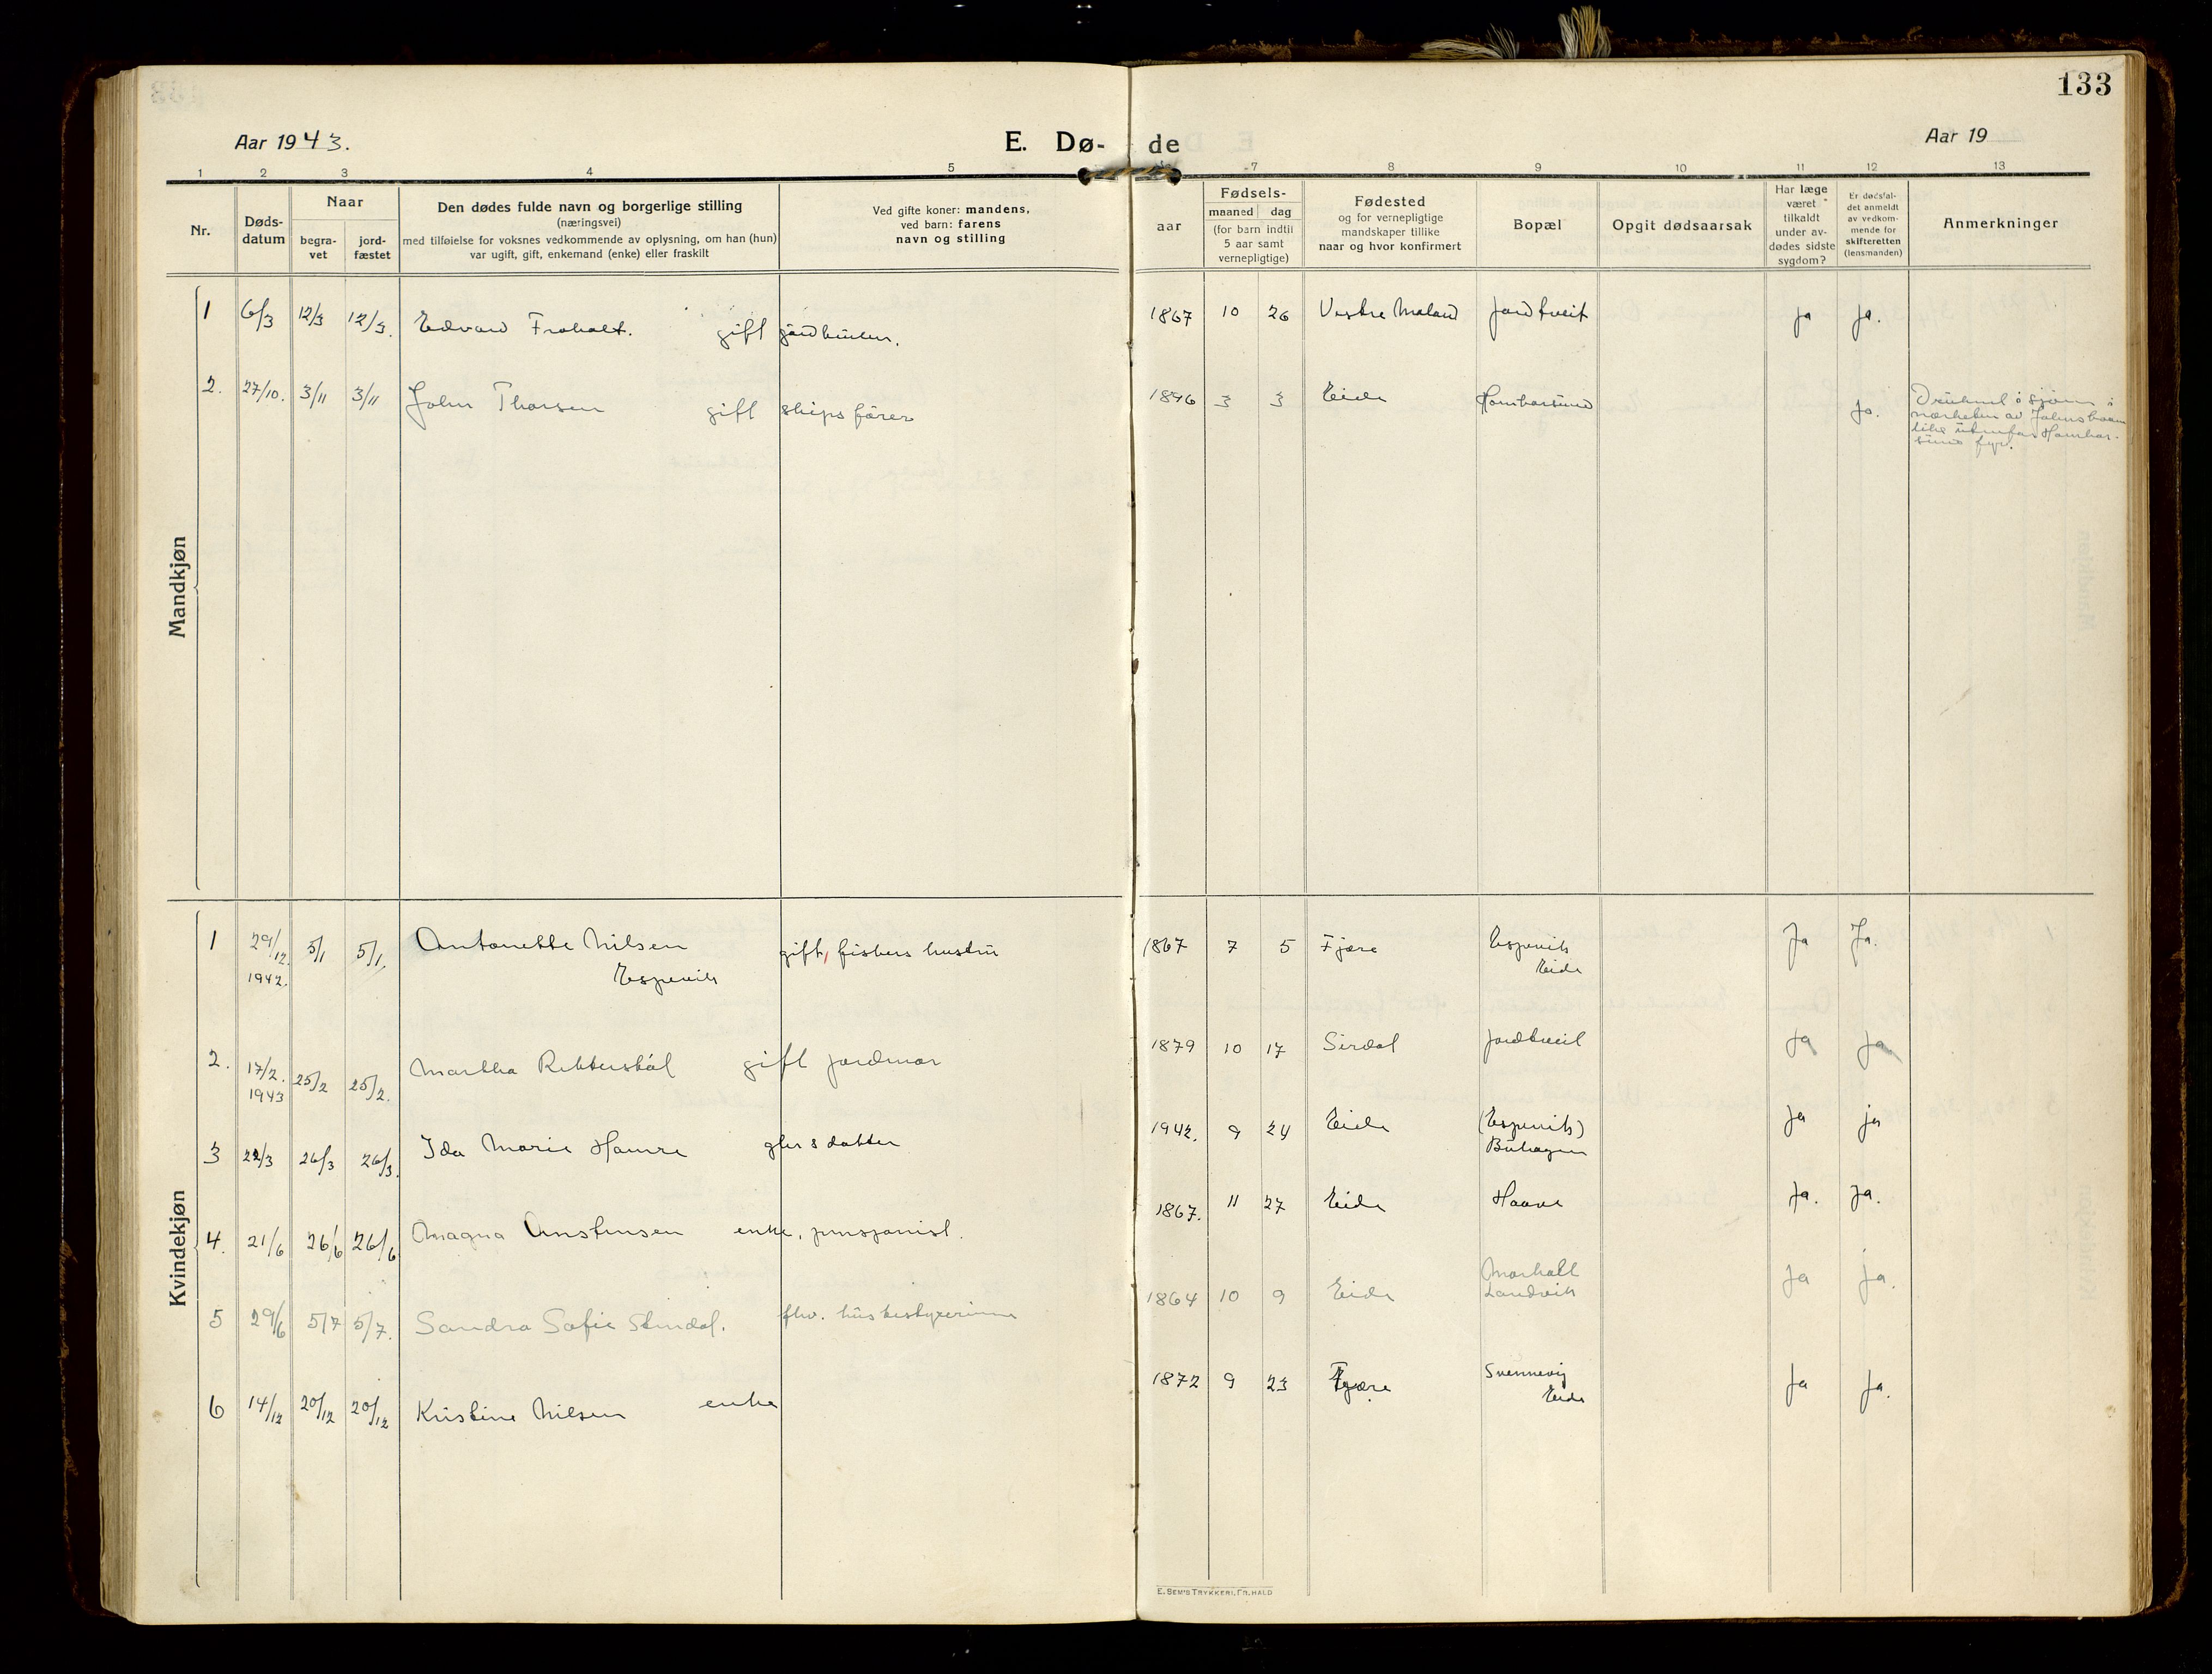 133
Aar 1943.
E. Dø- de
Aar 19
1 2 3 4 5 7 8 9 10 11 12 13
Nr.
Døds-
datum
Naar
begra-
vet
jord-
fæstet
Den dødes fulde navn og borgerlige stilling
(næringsvei)
med tilføielse for voksnes vedkommende av oplysning, om han (hun)
var ugift, gift, enkemand (enke) eller fraskilt
Ved gifte koner: mandens,
ved barn: farens
navn og stilling
aar
Fødsels-
maaned dag
(for barn indtil
5 aar samt
vernepligtige)
Fødested
og for vernepligtige
mandskaper tillike
naar og hvor konfirmert
Bopæl
Opgit dødsaarsak
Har læge
været
tilkaldt
under av-
dødes sidste
sygdom?
Er dødsfal-
det anmeldt
av vedkom-
mende for
skifteretten
(lensmanden)
Anmerkninger
Mandkjøn
1 6/3 12/3 12/3. Edvard Froholt. gift gårdbruker. 1867 10 26 Vestre Moland Jordtveit ja ja.
2. 27/10. 3/11 3/11 John Thorsen gift skipsfører 3 3 Eide Homborsund ja.
Druknet i sjøen i
nærheten av
like utenfor Hombor-
sund fyr.
Kvindekjøn
1 29/12. 1942. 5/1 5/1, Antonette Nilsen gift, fiskers hustru 1867 7 5 Fjære Espevik Ja Ja.
Espevik Eide
2. 17/2. 1943 25/2 25/2. Martha Rekkerskål... gift jordmor 1879 10 17 Sirdal Jordtveit Ja Ja
3 22/3 26/3 26/3. Ida Marie Hamre 1942. 9 24 Eide (Espevik) Ja ja
4. 21/6 26/6 26/6 Magna Anstensen enke, pensjonist. 1867. 11 27 Eide Haave Ja. Ja.
5 29/6 5/7 5/7. Sandra Sofie Stendal. fhv. husbestyrerinne 1864 10 9 Eide Morholt Ja ja.
Landvik
6 14/12 20/12 20/12 Kristine Nilsen enke 1872 9 23 Fjære Svennevig Ja Ja.
Eide
E. SEM'S TRYKKERI, FR.HALD